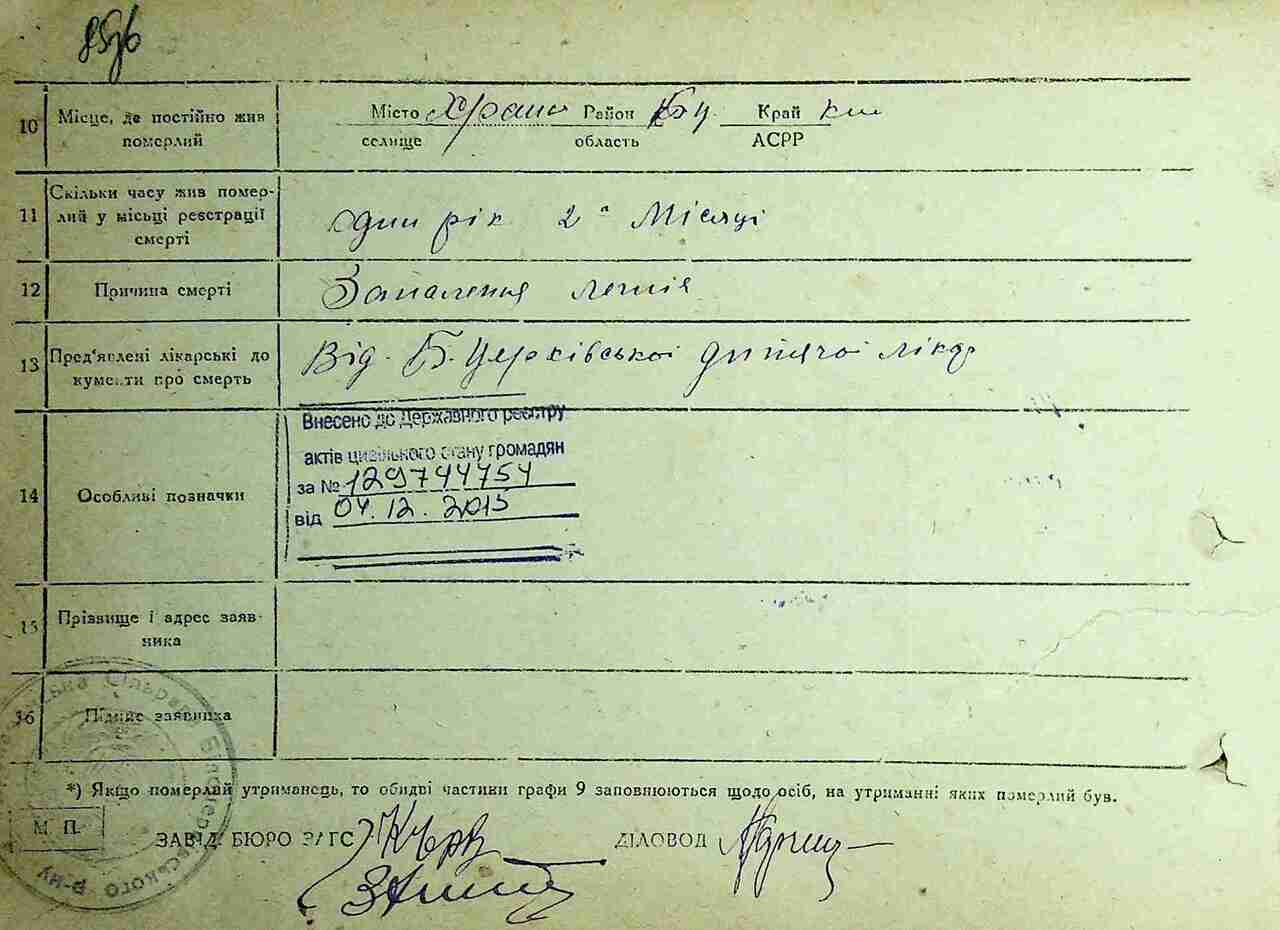 10 Місце, де постійно жив померлий
Місто Район Б Ц. Край
селище область АСРР
11 Скільки часу жив помер-
лий у місьці реєстрації
смерті
один рік 2 Місяці
12 Причина смерті
Запалення легнів
13 Пред'явлені лікарські до
кументи про смерть
Від Б. Церківської дитячої лікар
14 Особливі позначки
Внесено до Державного реєстру
актів цивільного стану громадян
за № 129744754
від 04.12.2015
15 Прізвище і адрес заяв-
ника
16 Підпис заявника
*) Якщо померлий утриманець, то обидві частини графи 9 заповнюються щодо осіб, на утриманні яких померлий був.
М. П.
ЗАВІД. БЮРО ЗАГС ДІЛОВОД